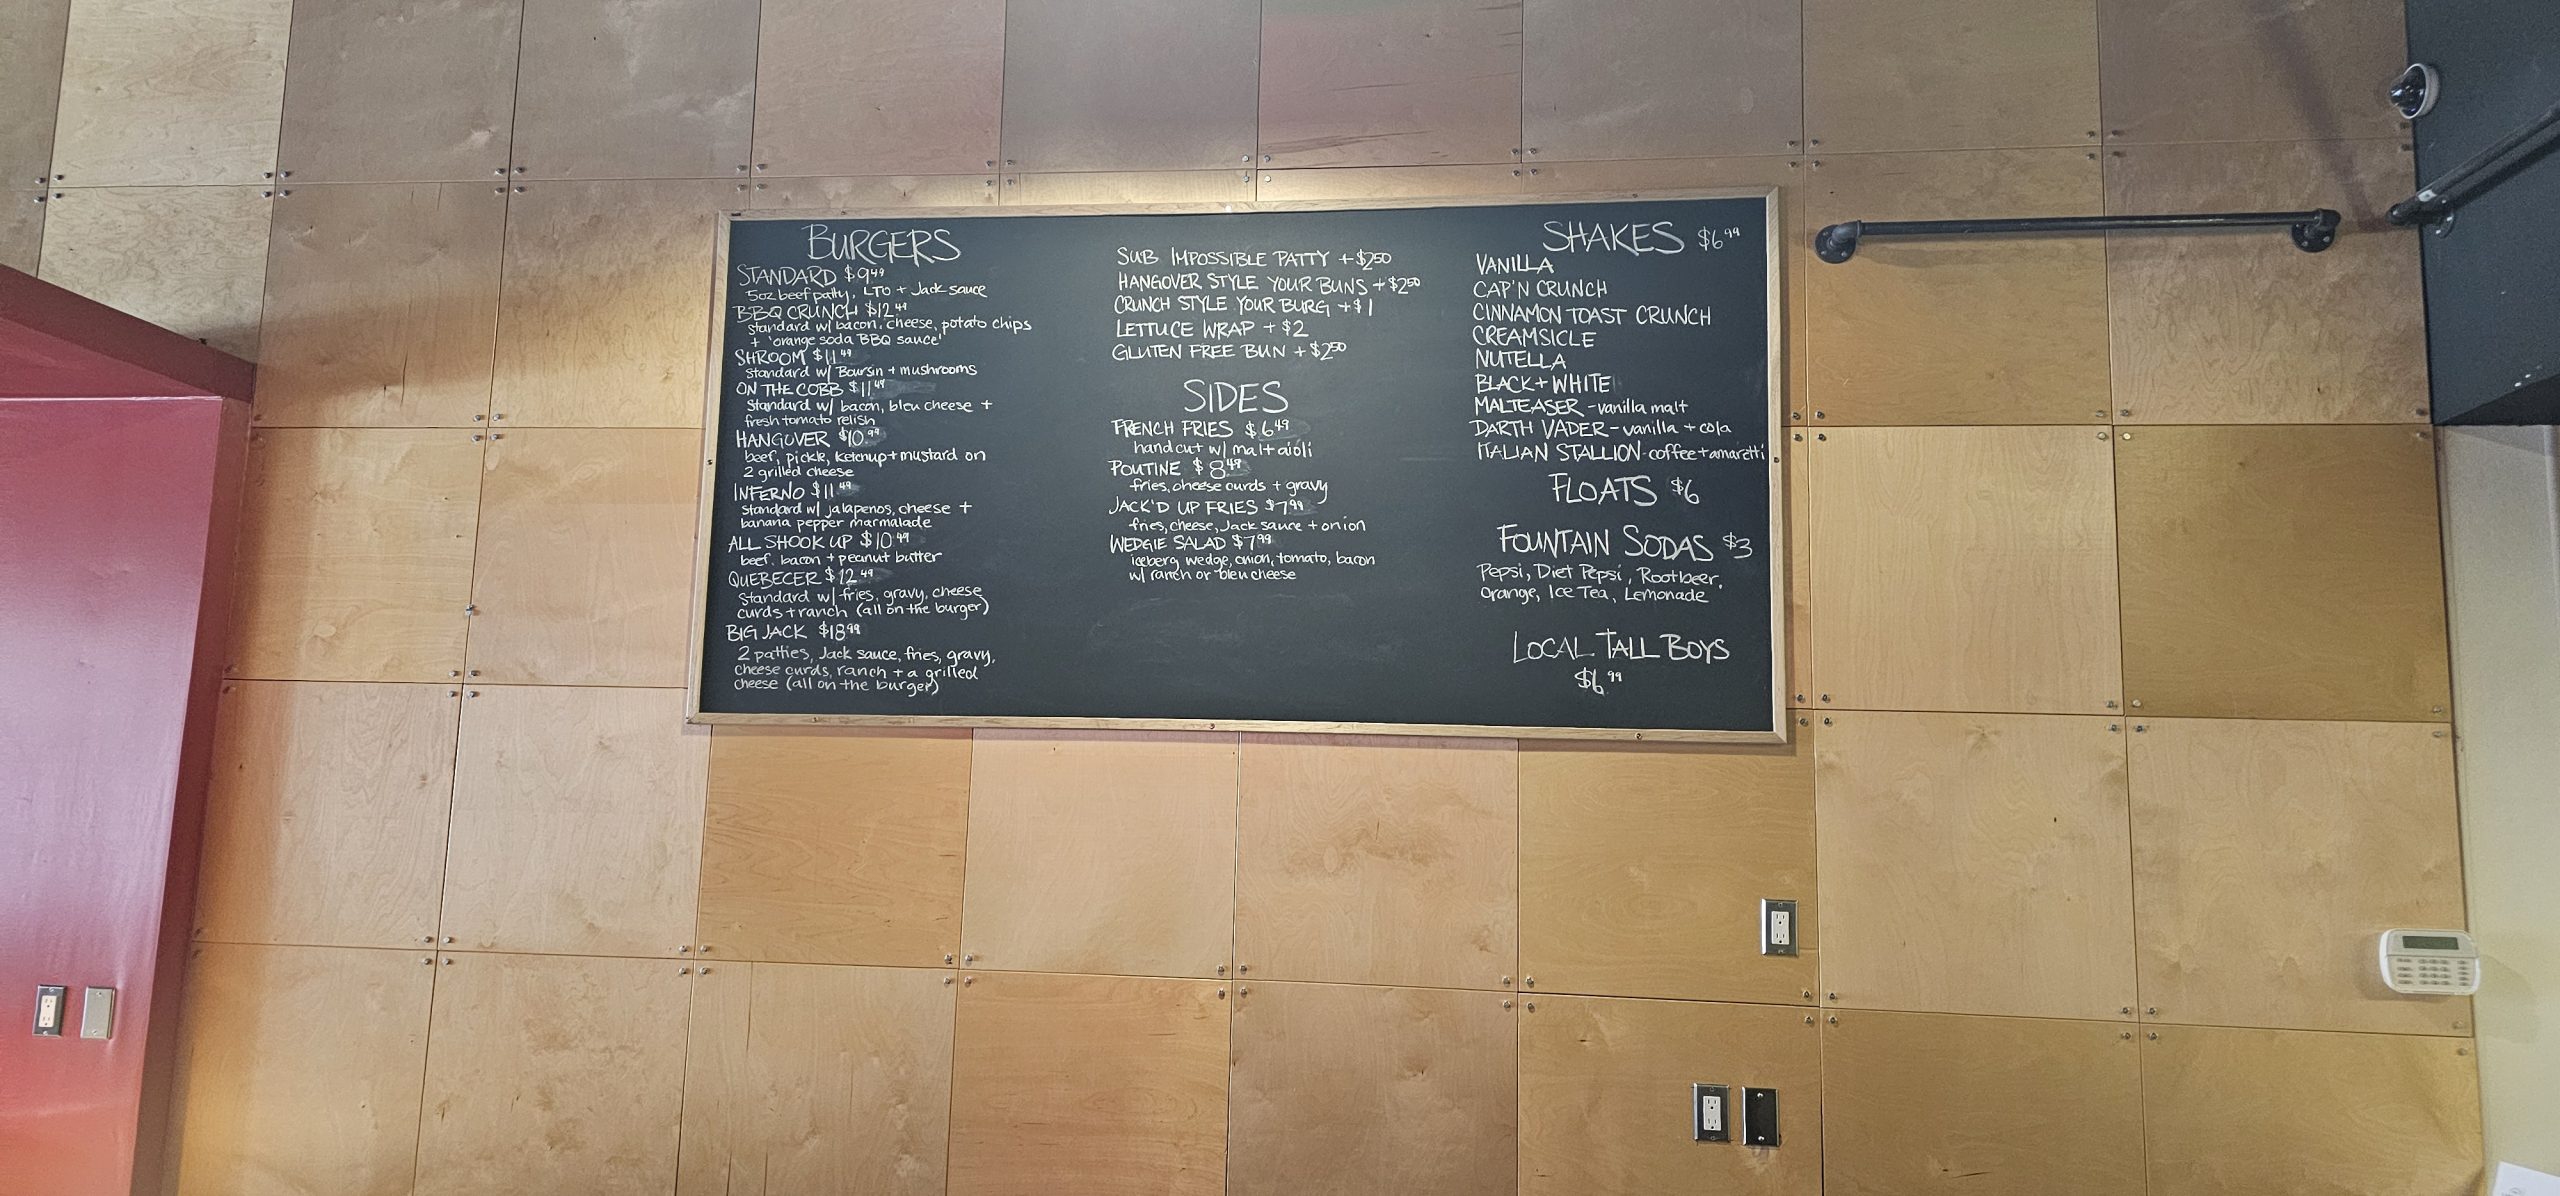 BURGERS
STANDARD $9.49
5oz beef patty, LTO + Jack sauce
BBQ CRUNCH $12.49
standard w/ bacon, cheese, potato chips
+ 'orange soda BBQ sauce'
SHROOM $11.49
standard w/ Boursin + mushrooms
ON THE COBB $11.49
standard w/ bacon, bleu cheese +
fresh tomato relish
HANGOVER $10.99
beef, pickle, ketchup + mustard on
2 grilled cheese
INFERNO $11.49
standard w/ jalapenos, cheese +
banana pepper marmalade
ALL SHOOK UP $10.49
beef, bacon + peanut butter
QUEBECER $12.49
standard w/ fries, gravy, cheese
curds + ranch (all on the burger)
BIG JACK $18.99
2 patties, Jack sauce, fries, gravy,
cheese curds, ranch + a grilled
cheese (all on the burger)
SUB IMPOSSIBLE PATTY +$2.50
HANGOVER STYLE YOUR BUNS +$2.50
CRUNCH STYLE YOUR BURG +$1
LETTUCE WRAP +$2
GLUTEN FREE BUN +$2.50
SIDES
FRENCH FRIES $6.49
handcut w/ malt aioli
POUTINE $8.49
fries, cheese curds + gravy
JACK'D UP FRIES $7.99
fries, cheese, Jack sauce + onion
WEDGIE SALAD $7.99
iceberg wedge, onion, tomato, bacon
w/ ranch or bleu cheese
SHAKES $6.99
VANILLA
CAP'N CRUNCH
CINNAMON TOAST CRUNCH
CREAMSICLE
NUTELLA
BLACK + WHITE
MALTEASER - vanilla malt
DARTH VADER - vanilla + cola
ITALIAN STALLION - coffee + amaretti
FLOATS $6
FOUNTAIN SODAS $3
Pepsi, Diet Pepsi, Rootbeer,
Orange, Ice Tea, Lemonade
LOCAL TALL BOYS
$6.99